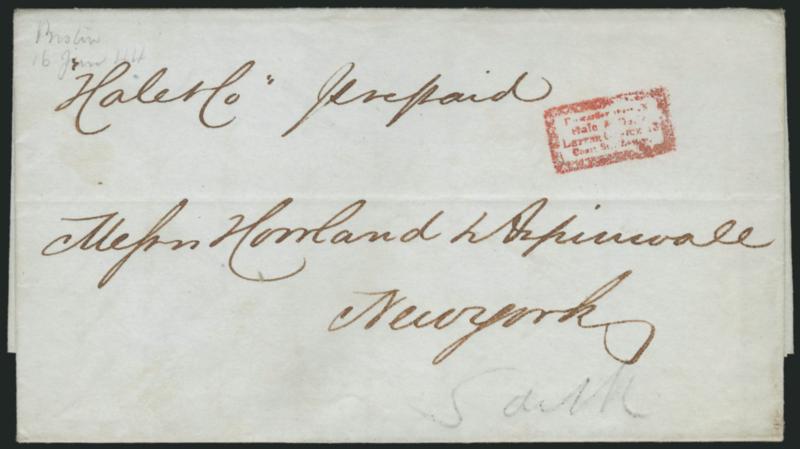 Boston
16 Jun 44
"Hale & Co" prepaid
Hale &
Court St.
Messrs Howland & Aspinwall
New york
5